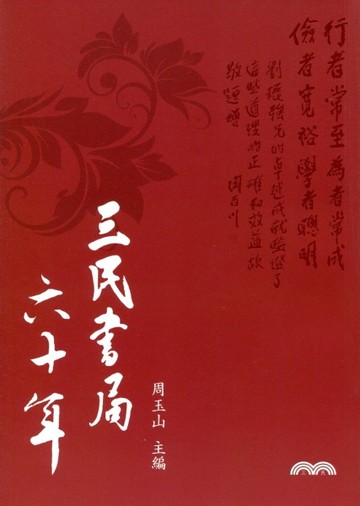 行者常至為者常成
儉者寬裕學者聰明
劉振強兄的卓越成就驗證了
這些道理的正確和效益故
敬題贈
三民書局
六十年
周玉山 主編